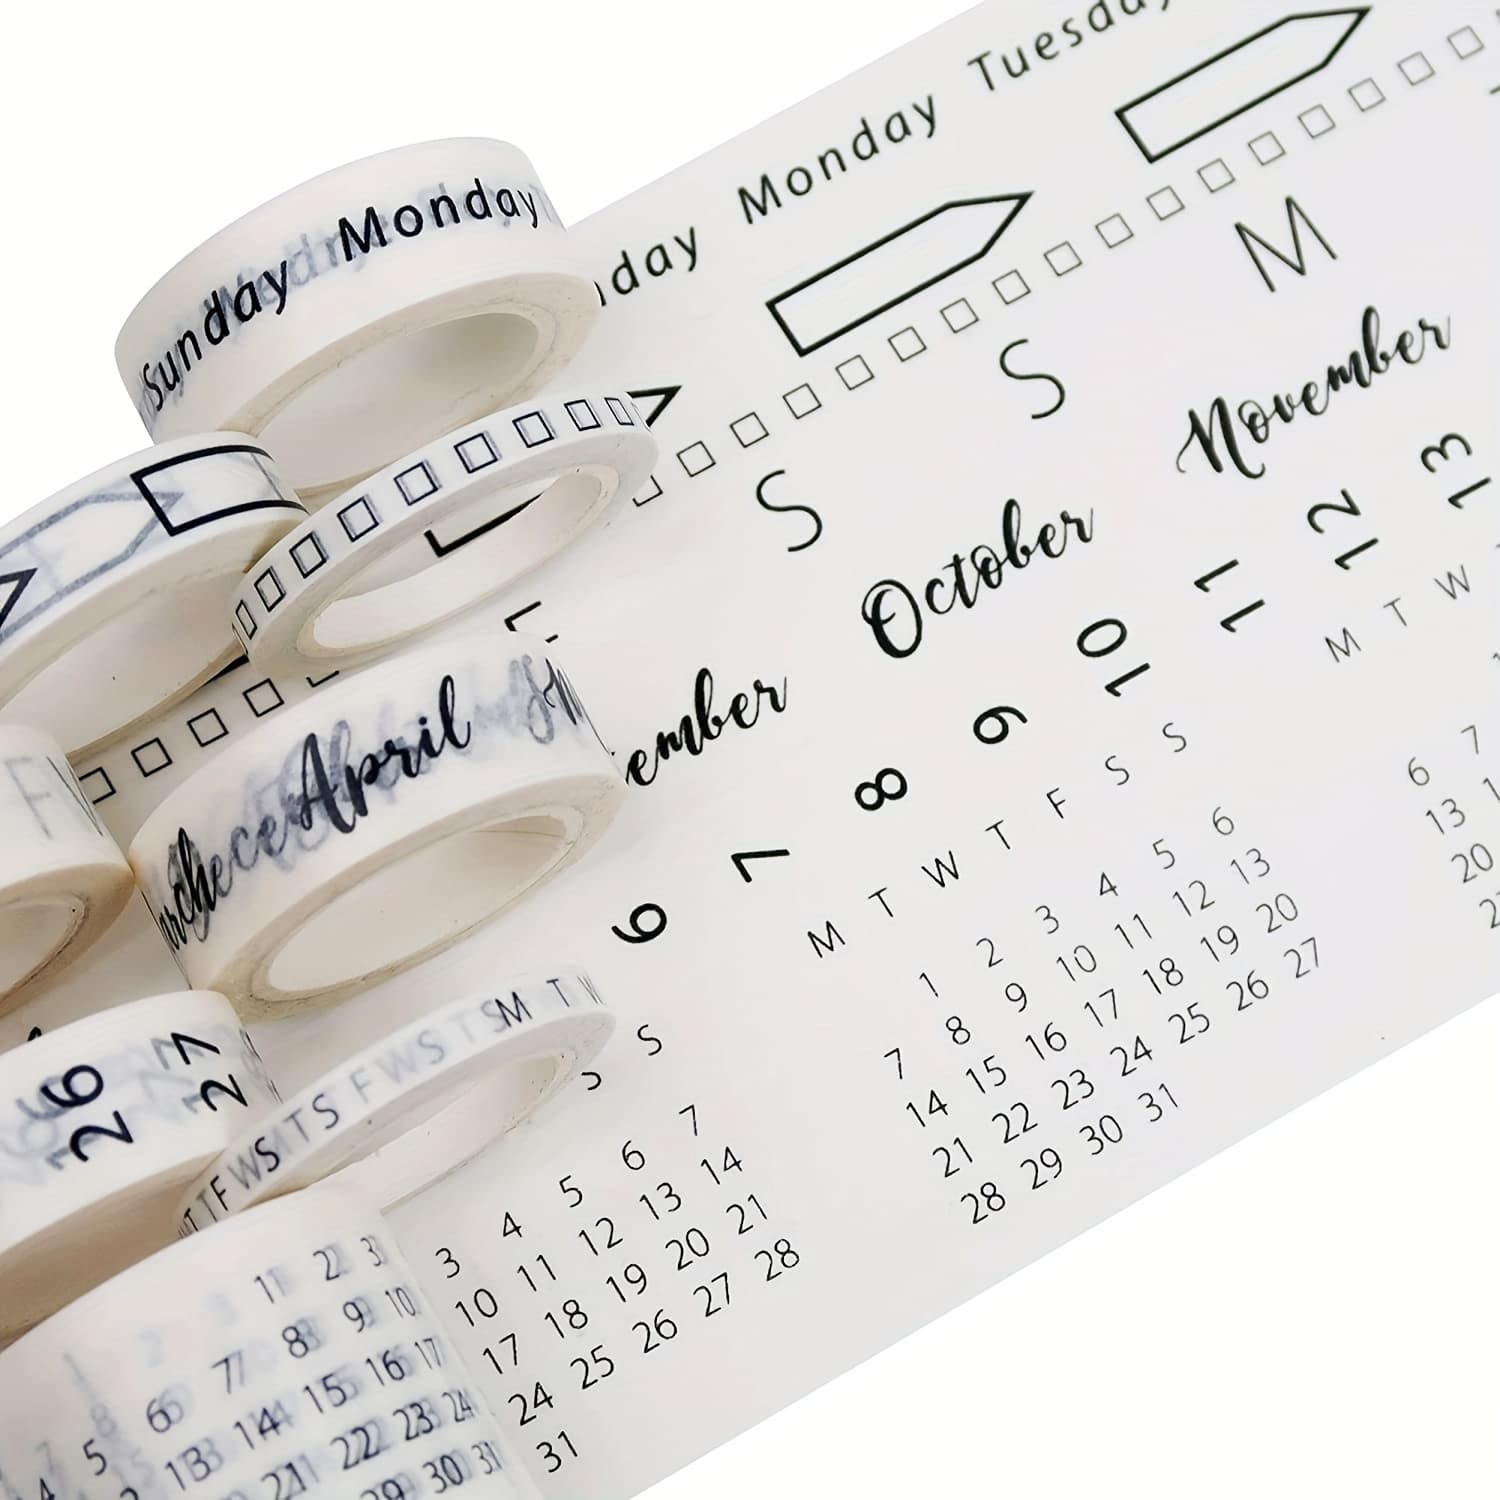 Sunday Monday
nday Monday Tuesday
S S M
ember October November
April
6 7 8 9 10 11 12 13
26 27
M T W T F S S
1 2 3 4 5 6
7 8 9 10 11 12 13
14 15 16 17 18 19 20
21 22 23 24 25 26 27
28 29 30 31
M T W
6 7
13
20
S
3 4 5 6 7
10 11 12 13 14
17 18 19 20 21
24 25 26 27 28
31
F W S T S M T W
T F W S T S
1 2 3
5 6 7 8 9 10
13 14 15 16 17
21 22 23 24
29 30 31